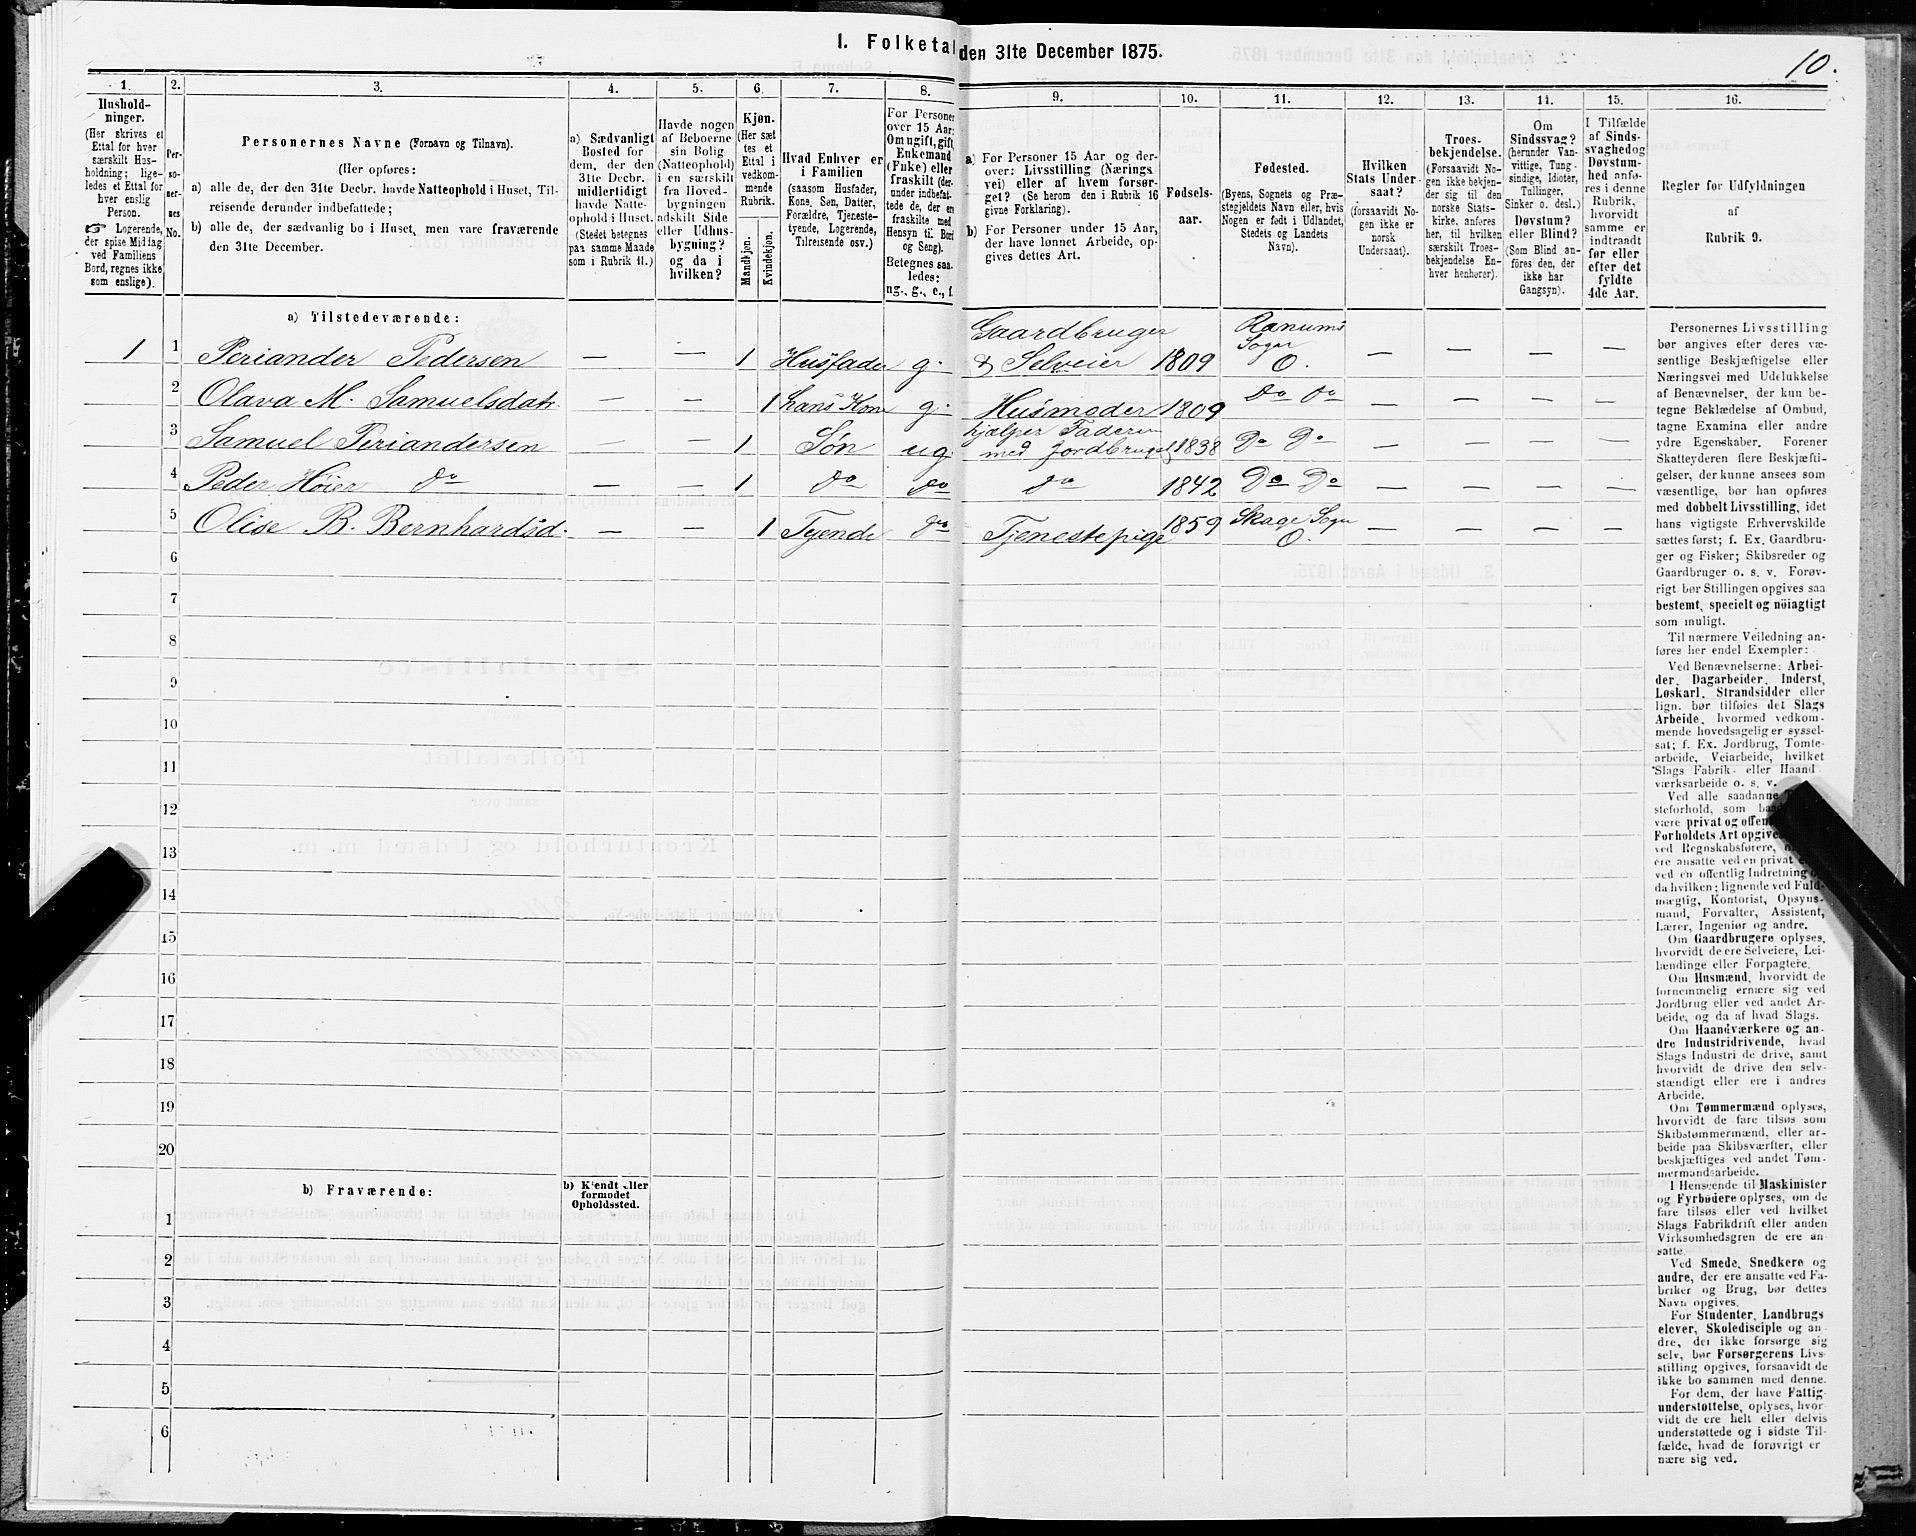 1. Folketal den 31te December 1875.
10.
1. 2. 3. 4. 5. 6. 7. 8. 9. 10. 11. 12. 13. 14. 15. 16.
Husholdninger.
(Her skrives et
Ettal for hver
særskilt Hus-
holdning; lige-
ledes et Ettal for
hver enslig
Person.
☞ Logerende,
der spise Middag
ved Familiens
Bord, regnes ikke
som enslige).
Per-
so-
ner-
nes
No.
Personernes Navne (Fornavn og Tilnavn).
(Her opføres:
a) alle de, der den 31te Decbr. havde Natteophold i Huset, Til-
reisende derunder indbefattede;
b) alle de, der sædvanlig bo i Huset, men vare fraværende
den 31te December.
a) Sædvanligt
Bosted for
dem, der den
31te Decbr.
midlertidigt
havde Natte-
ophold i Huset.
(Stedet betegnes
paa samme Maade
som i Rubrik 11.)
Havde nogen
af Beboerne
sin Bolig
(Natteophold)
i en særskilt
fra Hoved-
bygningen
adskilt Side
eller Udhus-
bygning?
og da i
hvilken?
Kjøn.
(Her sæt
tes et
Ettal i
vedkom-
mende
Rubrik.
Mandkjøn.
Kvindekjøn.
Hvad Enhver er
i Familien
(saasom Husfader,
Kone, Søn, Datter,
Forældre, Tjeneste-
tyende, Logerende,
Tilreisende osv.)
For Personer
over 15 Aar:
Om ugift, gift,
Enkemand
(Enke) eller
fraskilt (der-
under indbefat-
tede de, der er
fraskilte med
Hensyn til Bord
og Seng).
Betegnes saa-
ledes:
ug., g., e., f.
a) For Personer 15 Aar og der-
over: Livsstilling (Nærings
vei) eller af hvem forsør-
get? (Se herom den i Rubrik 16
givne Forklaring).
b) For Personer under 15 Aar,
der have lønnet Arbeide, op-
gives dettes Art.
Fødsels-
aar.
Fødested.
(Byens, Sognets og Præ-
stegjeldets Navn eller, hvis
Nogen er født i Udlandet,
Stedets og Landets
Navn).
Hvilken
Stats Under-
saat?
(forsaavidt No-
gen ikke er
norsk
Undersaat).
Troes-
bekjendelse.
(Forsaavidt No-
gen ikke bekjen-
der sig til den
norske Stats-
kirke, anføres
her, til hvilken
særskilt Troes-
bekjendelse En-
hver henhører).
Om
Sindssvag?
(herunder Van-
vittige, Tung-
sindige, Idioter,
Tullinger,
Sinker o. desl.)
Døvstum?
eller Blind?
(Som Blind an-
føres den, der
ikke har
Gangsyn).
I Tilfælde
af Sinds-
svaghed og
Døvstum-
hed anfø-
res i denne
Rubrik,
hvorvidt
samme er
indtraadt
før eller
efter det
fyldte
4de Aar.
Regler for Udfyldningen
af
Rubrik 9.
a) Tilstedeværende:
1 1 Periander Pedersen — — 1 Husfader g. Gaardbruger & Selveier 1809 Ranums Sogn O. — — — —
2 Olava M. Samuelsdatr. — — 1 hans Kone g. Husmoder 1809 Do Do — — — —
3 Samuel Periandersen — — 1 Søn ug hjælper Faderen med Jordbruget 1838 Do Do — — — —
4 Peder Höier do — — 1 do do do 1842 Do Do — — — —
5 Olise B. Bernhardsd. — — 1 Tyende do Tjenestepige 1859 Skage Sogn O. — — — —
6
7
8
9
10
11
12
13
14
15
16
17
18
19
20
b) Fraværende:
b) Kjendt eller
formodet
Opholdssted.
1
2
3
4
5
6
Personernes Livsstilling
bør angives efter deres væ-
sentlige Beskjæftigelse eller
Næringsvei med Udelukkelse
af Benævnelser, der kun be-
tegne Beklædelse af Ombud,
tagne Examina eller andre
ydre Egenskaber. Forener
Skatteyderen flere Beskjæfti-
gelser, der kunne ansees som
væsentlige, bør han opføres
med dobbelt Livsstilling, idet
hans vigtigste Erhvervskilde
sættes først; f. Ex. Gaardbru-
ger og Fisker; Skibsreder og
Gaardbruger o. s. v. Forøv-
rigt bør Stillingen opgives saa
bestemt, specielt og nöiagtigt
som muligt.
Til nærmere Veiledning an-
føres her endel Exempler:
Ved Benævnelserne: Arbei-
der, Dagarbeider, Inderst,
Løskarl, Strandsidder eller
lign. bør tilføies det Slags
Arbeide, hvormed vedkom-
mende hovedsagelig er syssel-
sat; f. Ex. Jordbrug, Tomte-
arbeide, Veiarbeide, hvilket
Slags Fabrik- eller Haand
værksarbeide o. s. v.
Ved alle saadanne
steforhold, som
være privat og
Forholdets Art
ved Regnskabsførere,
ere ansatte ved en privat
ved en offentlig Indretning
da hvilken; lignende ved Fuld-
mægtig, Kontorist, Opsyns-
mand, Forvalter, Assistent,
Lærer, Ingeniør og andre.
Om Gaardbrugere oplyses,
hvorvidt de ere Selveiere, Lei-
lændinge eller Forpagtere.
Om Husmænd, hvorvidt de
fornemmelig ernære sig ved
Jordbrug eller ved andet Ar-
beide, og da af hvad Slags.
Om Haandværkere og an-
dre Industridrivende, hvad
Slags Industri de drive, samt
hvorvidt de drive den selv-
stændigt eller ere i andres
Arbeide.
Om Tømmermænd oplyses,
hvorvidt de fare tilsøs som
Skibstømmermænd, eller ar-
beide paa Skibsværfter, eller
beskjæftiges ved andet Tøm-
mermandsarbeide.
I Henseende til Maskinister
og Fyrbødere oplyses, om de
fare tilsøs eller ved hvilket
Slags Fabrikdrift eller anden
Virksomhedsgren de ere an-
satte.
Ved Smede, Snedkere og
andre, der ere ansatte ved Fa-
briker og Brug, bør dettes
Navn opgives.
For Studenter, Landbrugs
elever, Skoledisciple og an-
dre, der ikke forsørge sig
selv, bør Forsørgerens Livs-
stilling opgives, forsaavidt de
ikke bo sammen med denne.
For dem, der have Fattig-
understøttelse, oplyses, hvor-
vidt de ere helt eller delvis
understøttede og i sidste Til-
fælde, hvad de forøvrigt er
nære sig ved.